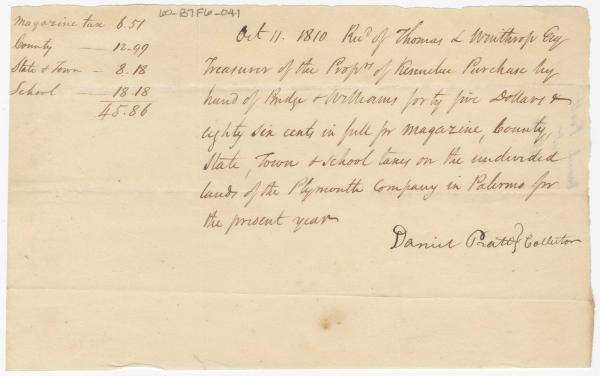 60-B7F6-041
Magazine tax 6.51
County — 12.99
State & Town — 8.18
School — 18.18
45.86
Oct 11. 1810 Recd of Thomas L Winthrop Esq
Treasurer of the Proprs of Kennebec Purchase by
hand of Bridge & Williams forty five Dollars &
eighty six cents in full for magazine, County,
State, Town & School taxes on the undivided
lands of the Plymouth Company in Palermo for
the present year
Daniel Pratt } Collector